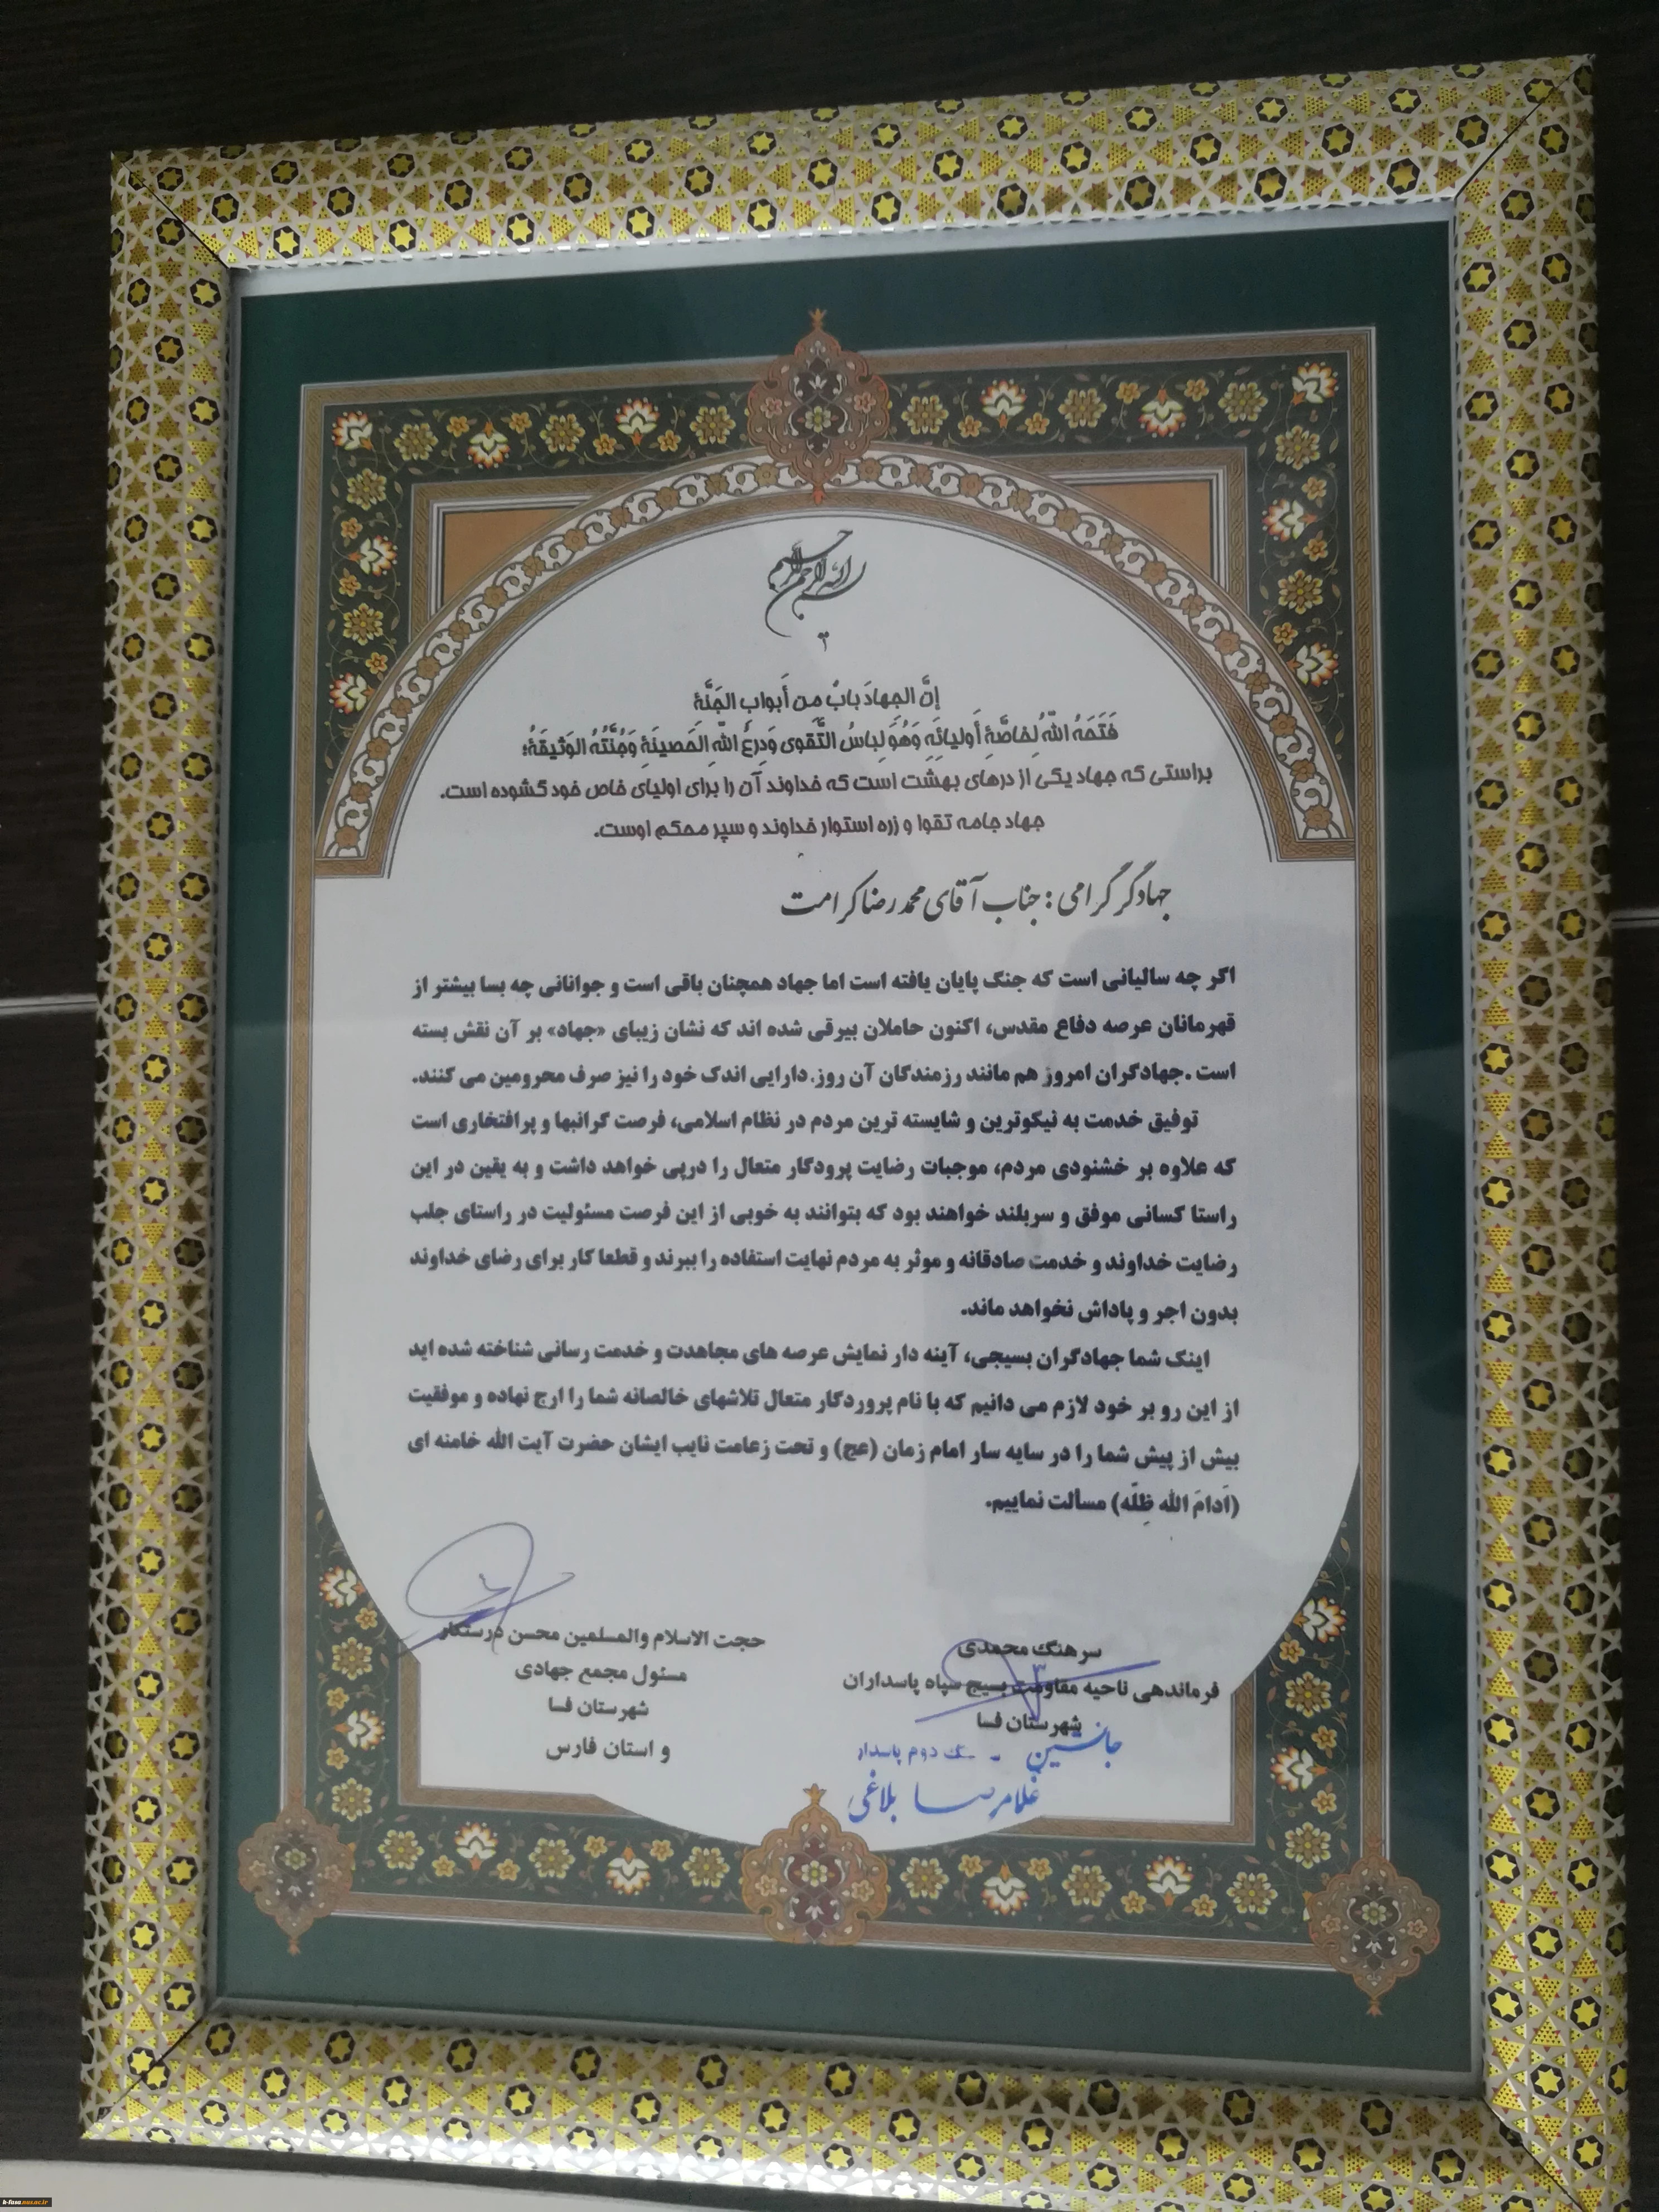 بسم الله الرحمن الرحیم
إنَّ الجِهادَ بابٌ من أبوابِ الجَنَّةِ
فَتَحَهُ اللّهُ لِخاصَّةِ أَولیائِهِ وَهُوَ لِباسُ التَّقوی وَدِرعُ اللّهِ الحَصینَةِ وَجُنَّتُهُ الوَثیقَةُ؛
براستی که جهاد یکی از درهای بهشت است که خداوند آن را برای اولیای خاص خود گشوده است.
جهاد جامه تقوا و زره استوار خداوند و سپر محکم اوست.
جهادگر گرامی: جناب آقای محمدرضا کرامت
اگر چه سالیانی است که جنگ پایان یافته است اما جهاد همچنان باقی است و جوانانی چه بسا بیشتر از
قهرمانان عرصه دفاع مقدس، اکنون حاملان بیرقی شده اند که نشان زیبای «جهاد» بر آن نقش بسته
است .جهادگران امروز هم مانند رزمندگان آن روز. دارایی اندک خود را نیز صرف محرومین می کنند.
توفیق خدمت به نیکوترین و شایسته ترین مردم در نظام اسلامی، فرصت گرانبها و پرافتخاری است
که علاوه بر خشنودی مردم، موجبات رضایت پرودگار متعال را درپی خواهد داشت و به یقین در این
راستا کسانی موفق و سربلند خواهند بود که بتوانند به خوبی از این فرصت مسئولیت در راستای جلب
رضایت خداوند و خدمت صادقانه و موثر به مردم نهایت استفاده را ببرند و قطعا کار برای رضای خداوند
بدون اجر و پاداش نخواهد ماند.
اینک شما جهادگران بسیجی، آینه دار نمایش عرصه های مجاهدت و خدمت رسانی شناخته شده اید
از این رو بر خود لازم می دانیم که با نام پروردگار متعال تلاشهای خالصانه شما را ارج نهاده و موفقیت
بیش از پیش شما را در سایه سار امام زمان (عج) و تحت زعامت نایب ایشان حضرت آیت الله خامنه ای
(اَدامَ الله ظِلّه) مسألت نماییم.
سرهنگ محمدی
فرماندهی ناحیه مقاومت بسیج سپاه پاسداران
شهرستان فسا
جانشین - سرهنگ دوم پاسدار
غلامرضا بلاغی
حجت الاسلام والمسلمین محسن درستکار
مسئول مجمع جهادی
شهرستان فسا
و استان فارس